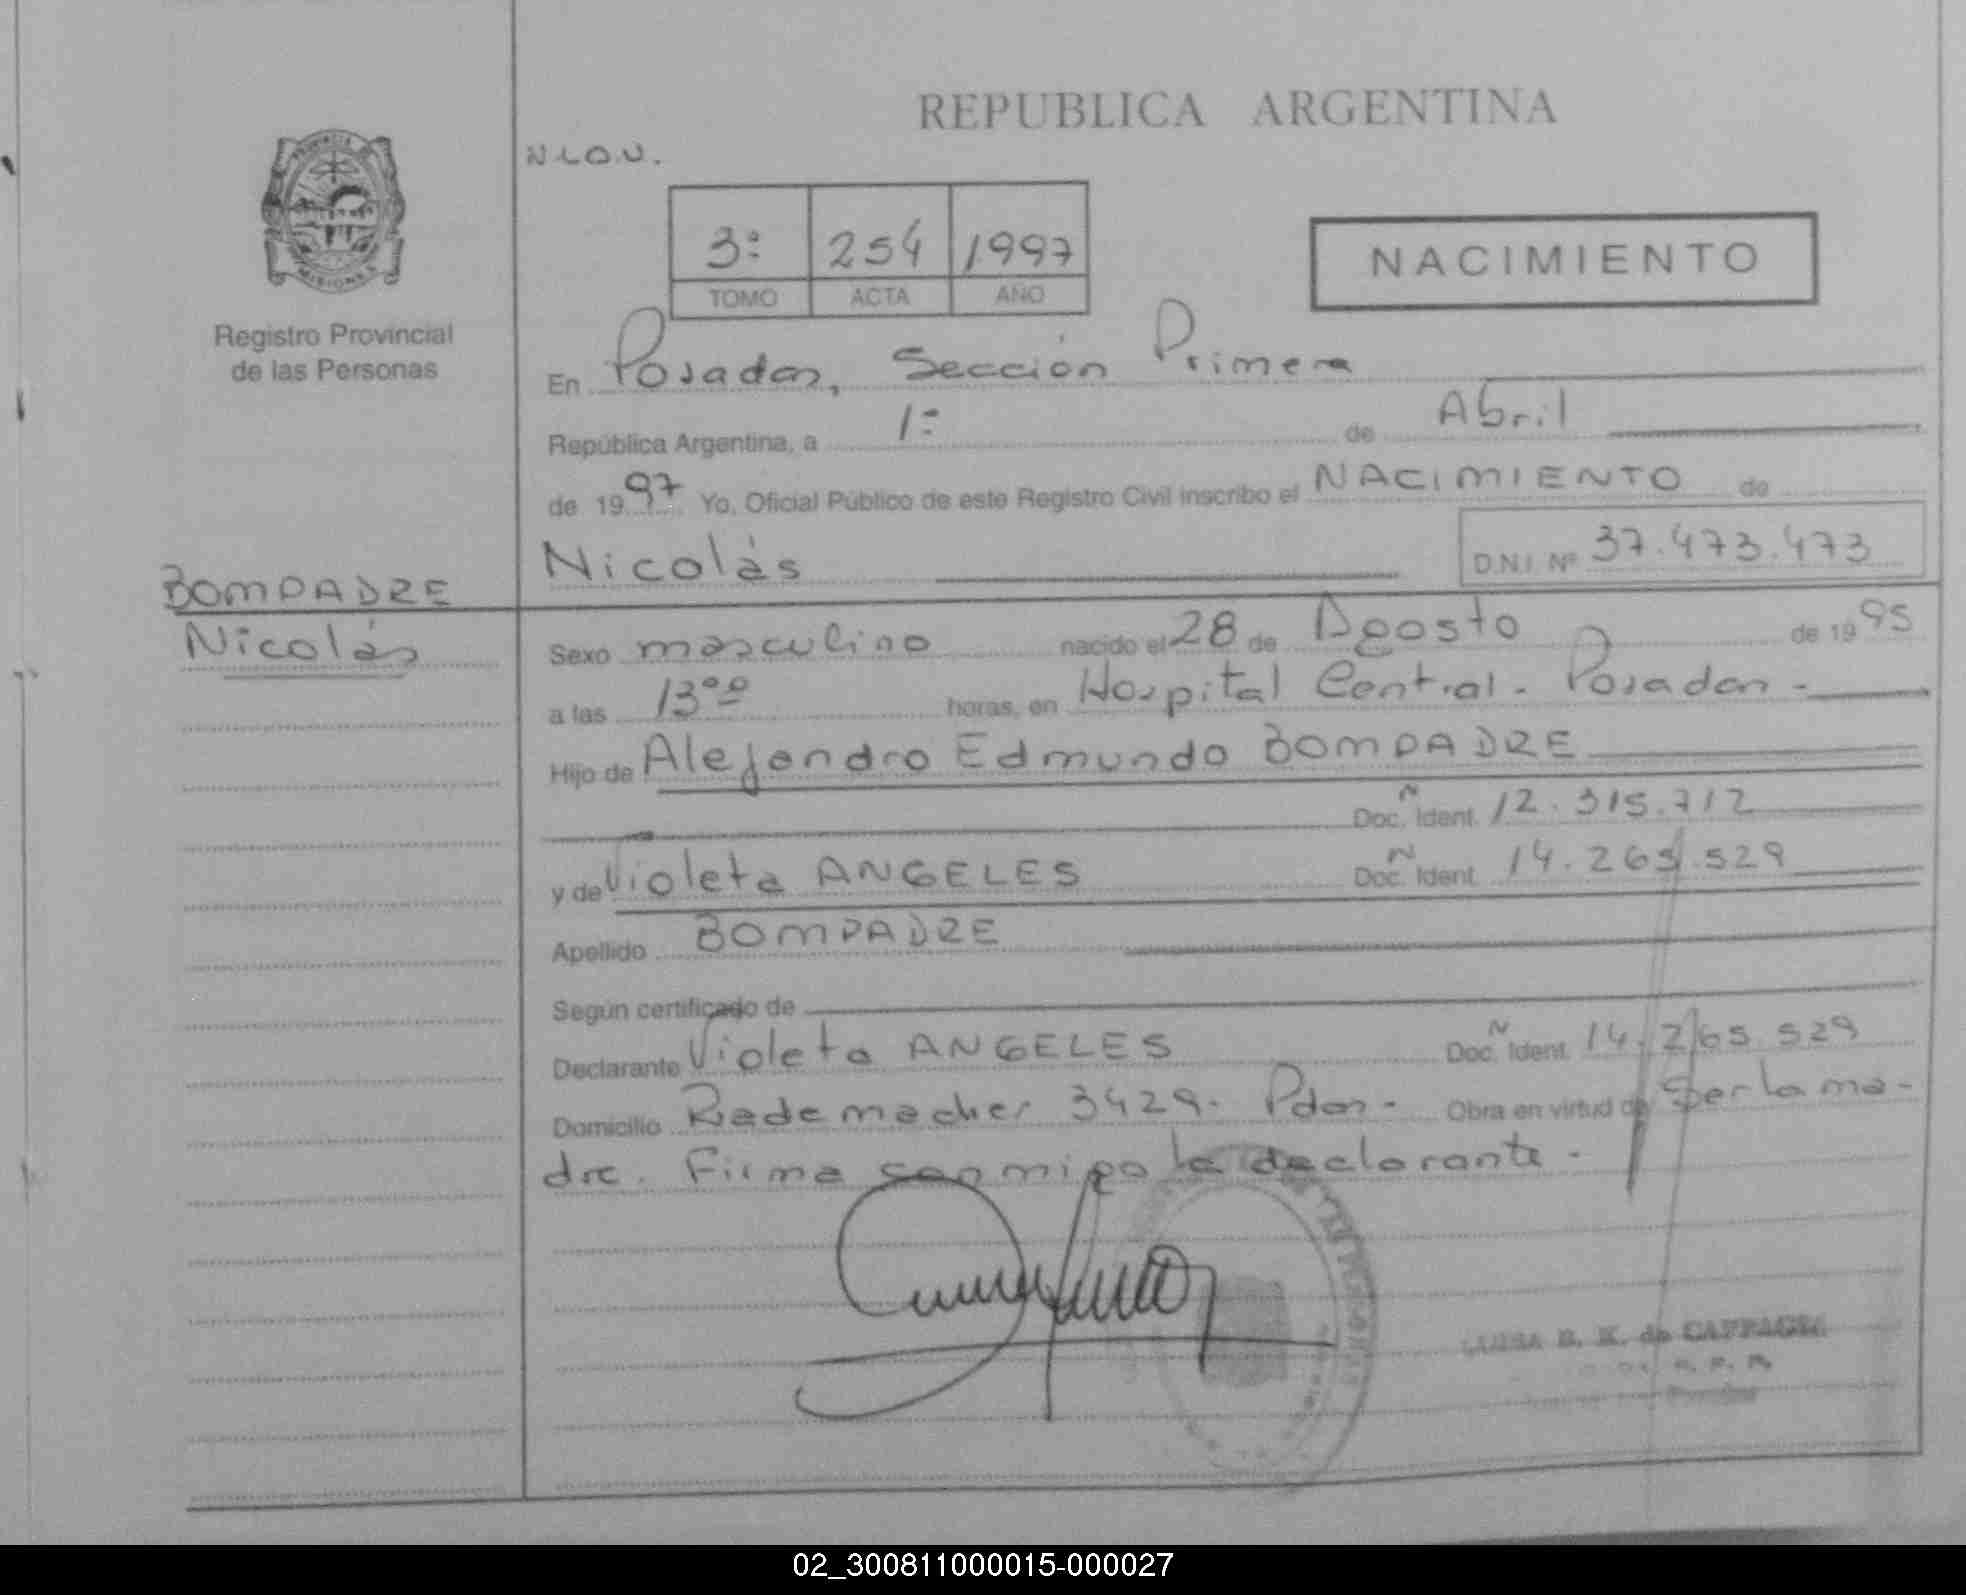 REPUBLICA ARGENTINA
N.L.O.V.
3º 254 1997
TOMO ACTA AÑO
NACIMIENTO
PROVINCIA
MISIONES
Registro Provincial
de las Personas
En Posadas, Sección Primera
República Argentina, a 1º de Abril
de 1997 Yo, Oficial Público de este Registro Civil inscribo el NACIMIENTO de
Nicolás D.N.I. Nº 37.473.473
BOMPADRE
Nicolás
Sexo masculino nacido el 28 de Agosto de 1995
a las 13ºº horas, en Hospital Central. Posadas.
Hijo de Alejandro Edmundo BOMPADRE
Doc. Ident. 12.315.712
y de Violeta ANGELES Doc. Ident. 14.265.529
Apellido BOMPADRE
Según certificado de
Declarante Violeta ANGELES Doc. Ident. 14.265.529
Domicilio Rademacher 3429. Pdas. Obra en virtud de Ser la ma-
dre. Firma conmigo la declarante.
LUISA E. K. de
02_300811000015-000027